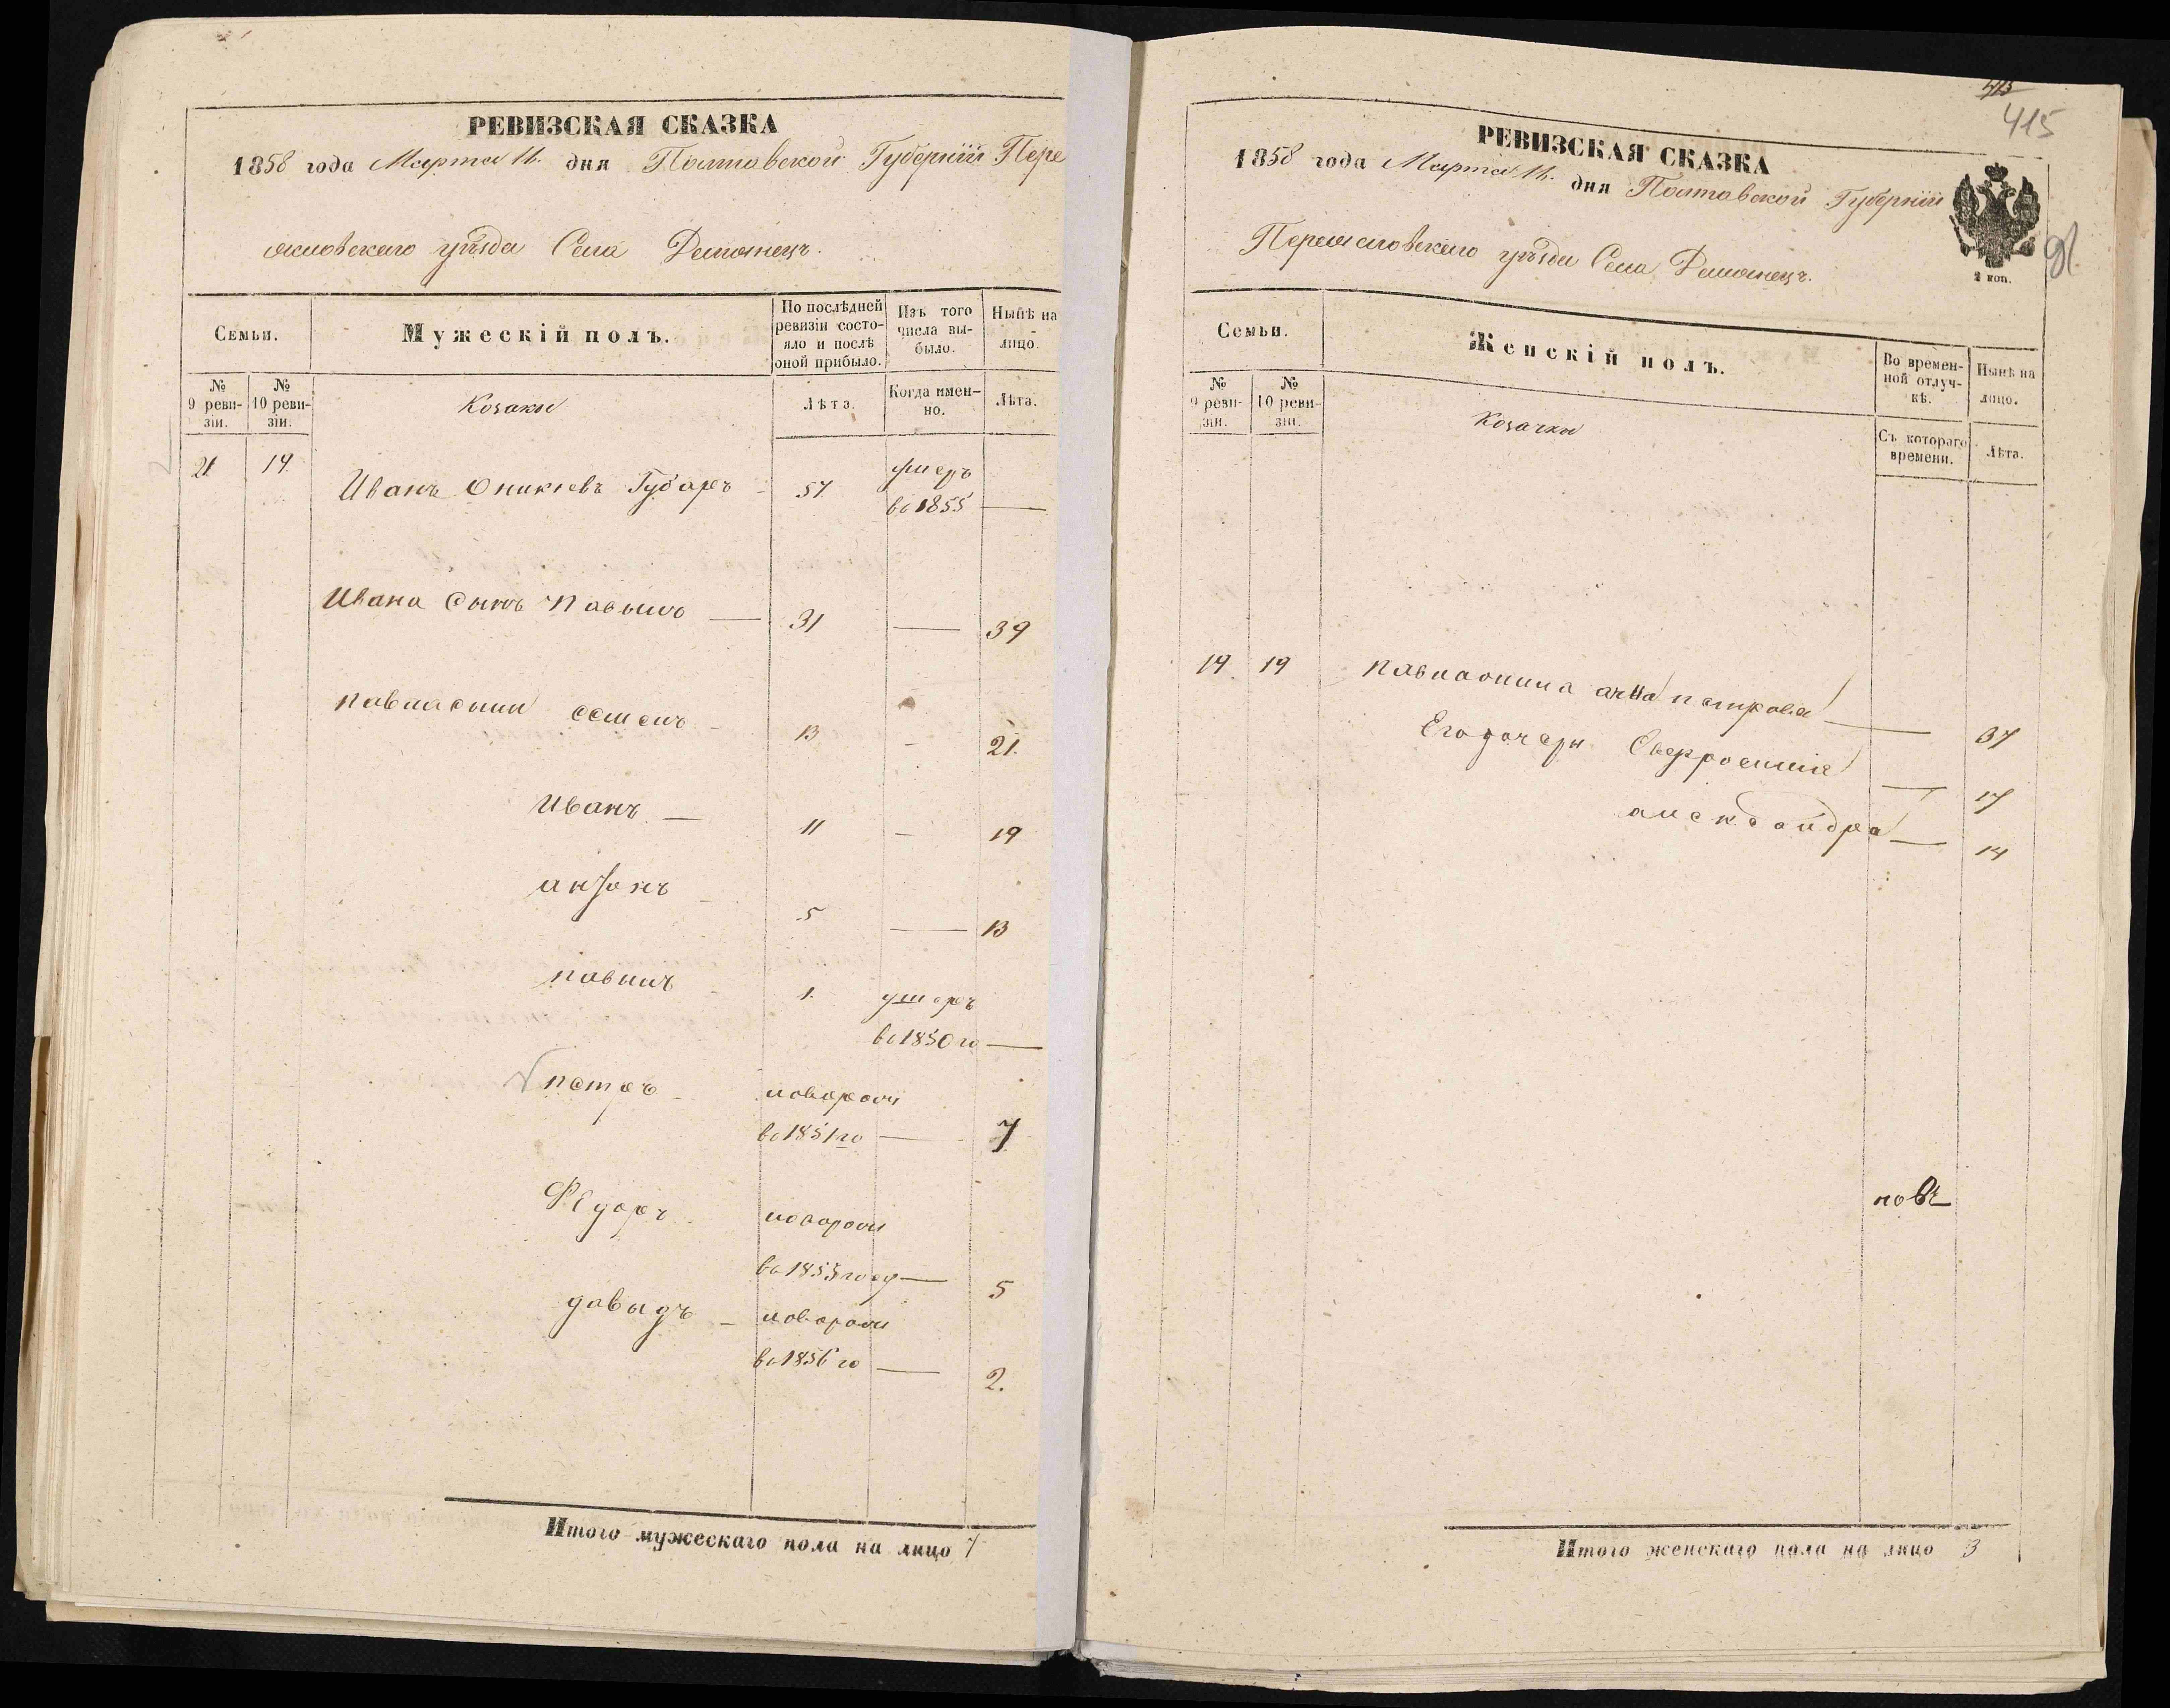 РЕВИЗСКАЯ СКАЗКА
1858 года Марта 11. дня Полтавской Губерніи Пере
яславскаго уѣзда Села Демянецъ.
Семьи.
Мужескій полъ.
По послѣдней ревизіи состояло и послѣ оной прибыло.
Изъ того числа выбыло.
Нынѣ на лицо.
№ 9 ревизіи.
№ 10 ревизіи.
Козаки
Лѣта.
Когда именно.
Лѣта.
21 19 Иванъ Оникіевъ Губарь 57 умеръ
в 1855 —
Ивана сынъ Павылъ — 31 — 39
Павла сыни Семенъ 13 — 21.
Иванъ — 11 — 19
Антонъ 5 — 13
Павилъ 1. умеръ
в 1850 го —
Петръ новорож
в 1851 го — 7
Федоръ новорож
в 1853 году — 5
Давыдъ — новорож
в 1856 го — 2.
Итого мужескаго пола на лицо 7
415
415
РЕВИЗСКАЯ СКАЗКА
1858 года Марта 11. дня Полтавской Губерніи
Переяславскаго уѣзда Села Демянецъ.
2 коп.
91.
Семьи.
Женскій полъ.
Во временной отлучкѣ.
Нынѣ на лицо.
№ 9 ревизіи.
№ 10 ревизіи.
Козачки
Съ котораго времени.
Лѣта.
19 19 Павла жина Анна Петрова — 37
Его дочери Евфросинія — 17
Александра — 14
Итого женскаго пола на лицо 3